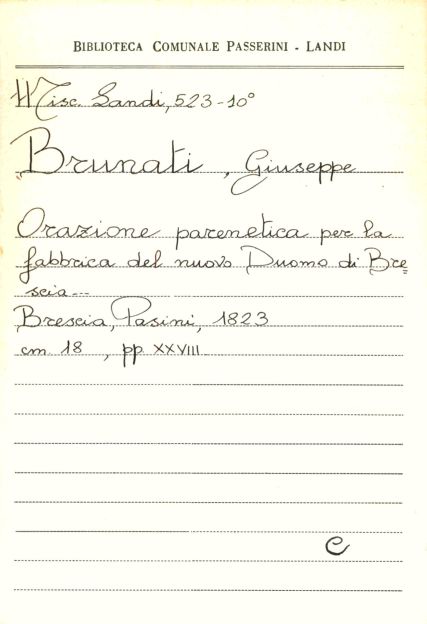 BIBLIOTECA COMUNALE PASSERINI - LANDI
Misc. Landi, 523-10°
Brunati, Giuseppe
Orazione parenetica per la
fabbrica del nuovo Duomo di Bre=
scia...
Brescia, Pasini, 1823
cm. 18, pp. XXVIII
C